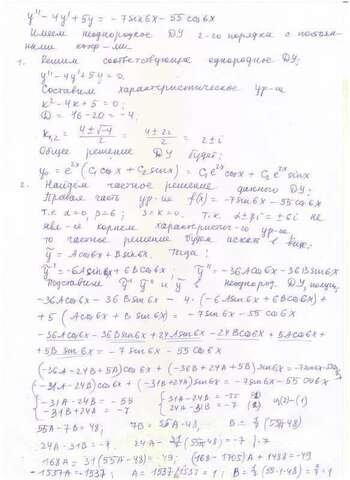 y'' - 4y' + 5y = -7sin6x - 55cos6x
Имеем неоднородное ДУ 2-го порядка с постоян-
ными коэф-ми.
1. Решим соответствующее однородное ДУ:
y'' - 4y' + 5y = 0;
Составим характеристическое ур-ие
k² - 4k + 5 = 0;
D = 16 - 20 = -4;
k₁,₂ = (4 ± √-4)/2 = (4 ± 2i)/2 = 2 ± i
Общее решение ДУ будет:
y₀ = e²ˣ(C₁cosx + C₂sinx) = C₁e²ˣcosx + C₂e²ˣsinx
2. Найдем частное решение данного ДУ:
Правая часть ур-ие f(x) = -7sin6x - 55cos6x
т.к. α=0, β=6; т.к. α±βi = ±6i не
явл-ся корнем характеристич-го ур-ие,
то частное решение будем искать в виде:
ỹ = Acos6x + Bsin6x. Тогда:
ỹ' = -6Asin6x + 6Bcos6x; ỹ'' = -36Acos6x - 36Bsin6x
Подставим ỹ' ỹ'' и ỹ в неоднород. ДУ, получ:
-36Acos6x - 36Bsin6x - 4·(-6Asin6x + 6Bcos6x) +
+5(Acos6x + Bsin6x) = -7sin6x - 55cos6x
-36Acos6x - 36Bsin6x + 24Asin6x - 24Bcos6x + 5Acos6x +
+5Bsin6x = -7sin6x - 55cos6x
(-36A-24B+5A)cos6x + (-36B+24A+5B)sin6x = -7sin6x-55cos6x
(-31A-24B)cos6x + (-31B+24A)sin6x = -7sin6x - 55cos6x
{-31A-24B = -55 {31A-24B = -55 (1)
{-31B+24A = -7 {24A-31B = -7 (2) (2)-(1)
55A - 7B = 48; 7B = 55A - 48; B = 1/7(55A-48)
24A - 31B = -7; 24A - 31/7(55A-48) = -7 |·7
168A - 31(55A-48) = -49; (168-1705)A + 1488 = -49
-1537A = -1537; A = 1537/1537 = 1; B = 1/7(55·1-48) = 7/7 = 1